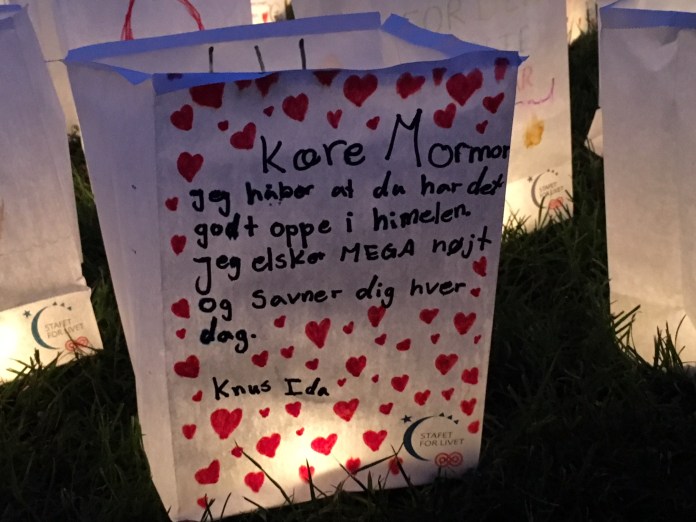 Kære Mormor
jeg håber at du har det
godt oppe i himelen.
jeg elsker MEGA højt
og savner dig hver
dag.
Knus Ida
STAFET
FOR LIVET
STAFET
FOR LIVET
STAFET
FOR LIVET